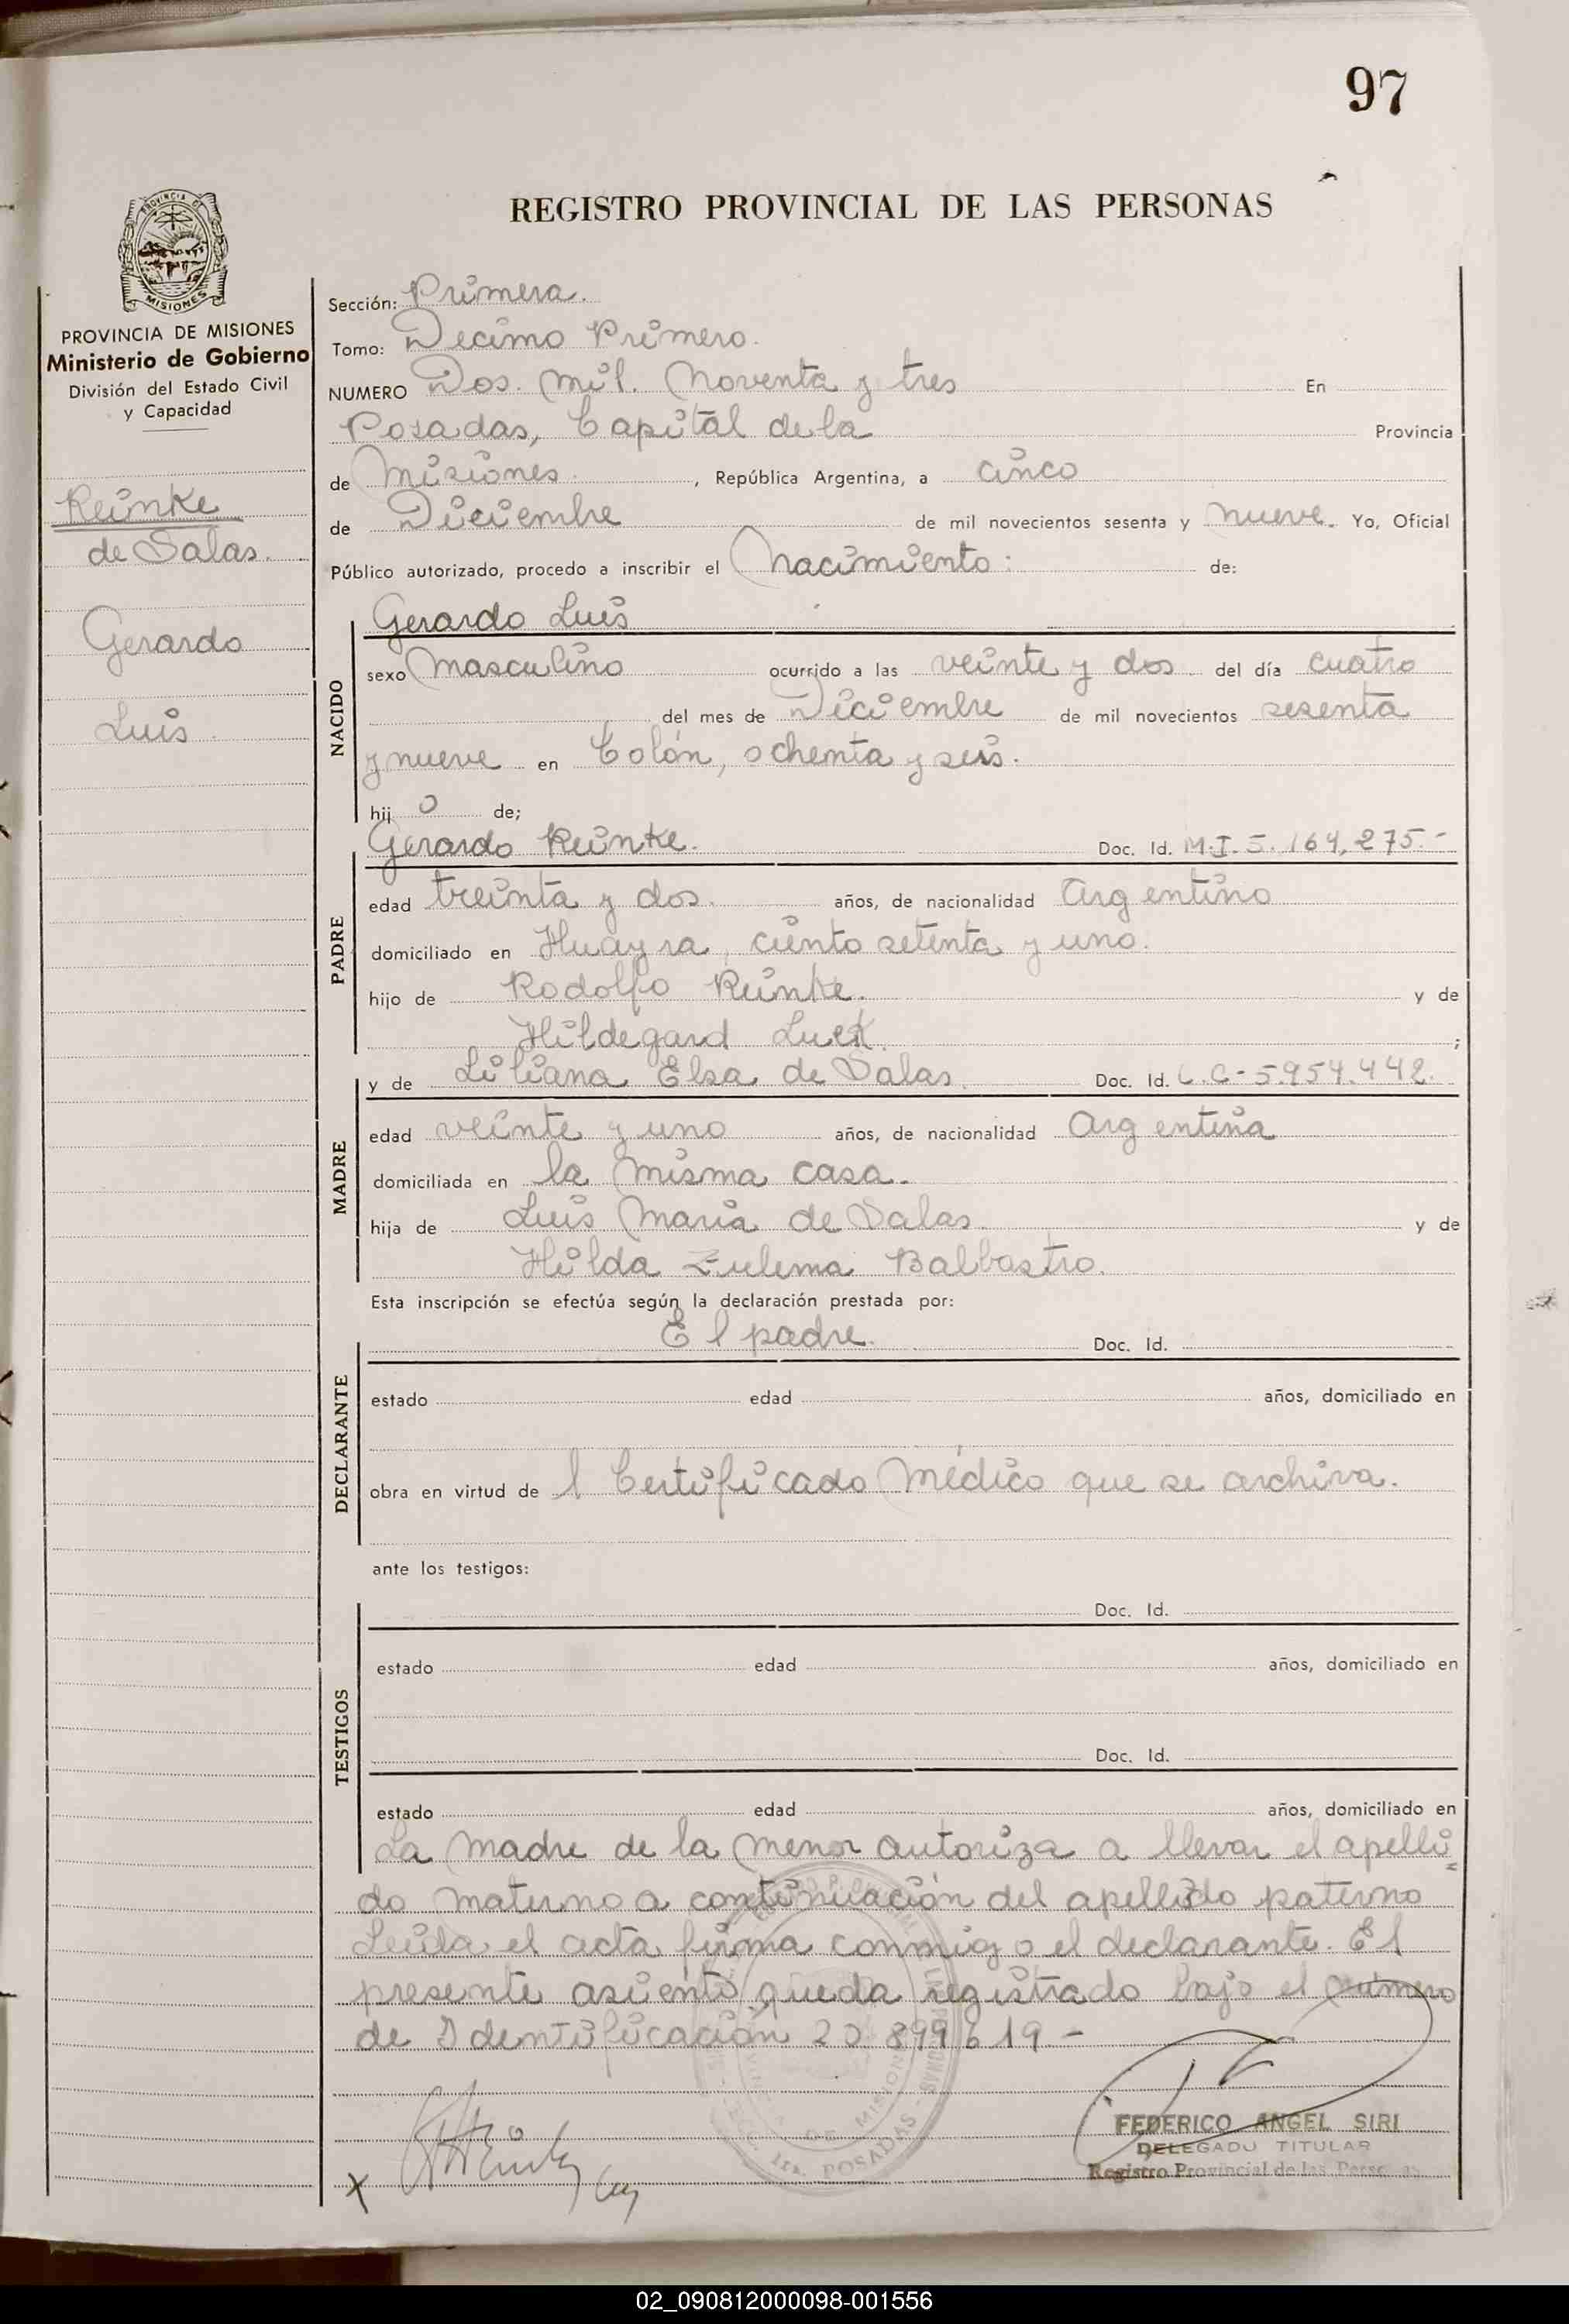 97
REGISTRO PROVINCIAL DE LAS PERSONAS
PROVINCIA DE
MISIONES
PROVINCIA DE MISIONES
Ministerio de Gobierno
División del Estado Civil
y Capacidad
Reinke
de Salas.
Gerardo
Luis
Sección: Primera.
Tomo: Decimo Primero.
NUMERO Dos. mil. Noventa y tres En
Posadas, Capital de la Provincia
de Misiones , República Argentina, a cinco
de Diciembre de mil novecientos sesenta y nueve. Yo, Oficial
Público autorizado, procedo a inscribir el Nacimiento: de:
NACIDO
Gerardo Luis
sexo Masculino ocurrido a las veinte y dos del día cuatro
del mes de Diciembre de mil novecientos sesenta
y nueve en Colón, ochenta y seis.
hij o de;
PADRE
Gerardo Reinke. Doc. Id. M.I. 5.164,275.-
edad treinta y dos. años, de nacionalidad Argentino
domiciliado en Huayra, ciento setenta y uno.
hijo de Rodolfo Reinke. y de
Hildegard Luck. ;
MADRE
y de Liliana Elsa de Salas. Doc. Id. L.C- 5.954.442.
edad veinte y uno años, de nacionalidad Argentina
domiciliada en la misma casa.
hija de Luis Maria de Salas. y de
Hilda Zulema Balbastro.
Esta inscripción se efectúa según la declaración prestada por:
DECLARANTE
El padre. Doc. Id.
estado edad años, domiciliado en
obra en virtud de l Certificado Médico que se archiva.
ante los testigos:
TESTIGOS
Doc. Id.
estado edad años, domiciliado en
Doc. Id.
estado edad años, domiciliado en
La Madre de la menor autoriza a llevar el apelli=
do materno a continuación del apellido paterno
Leida el acta firma conmigo el declarante. El
presente asiento queda registrado bajo el número
de Identificación 20 899 619 -
POSADAS
FEDERICO ANGEL SIRI
DELEGADO TITULAR
Registro Provincial de las
02_090812000098-001556